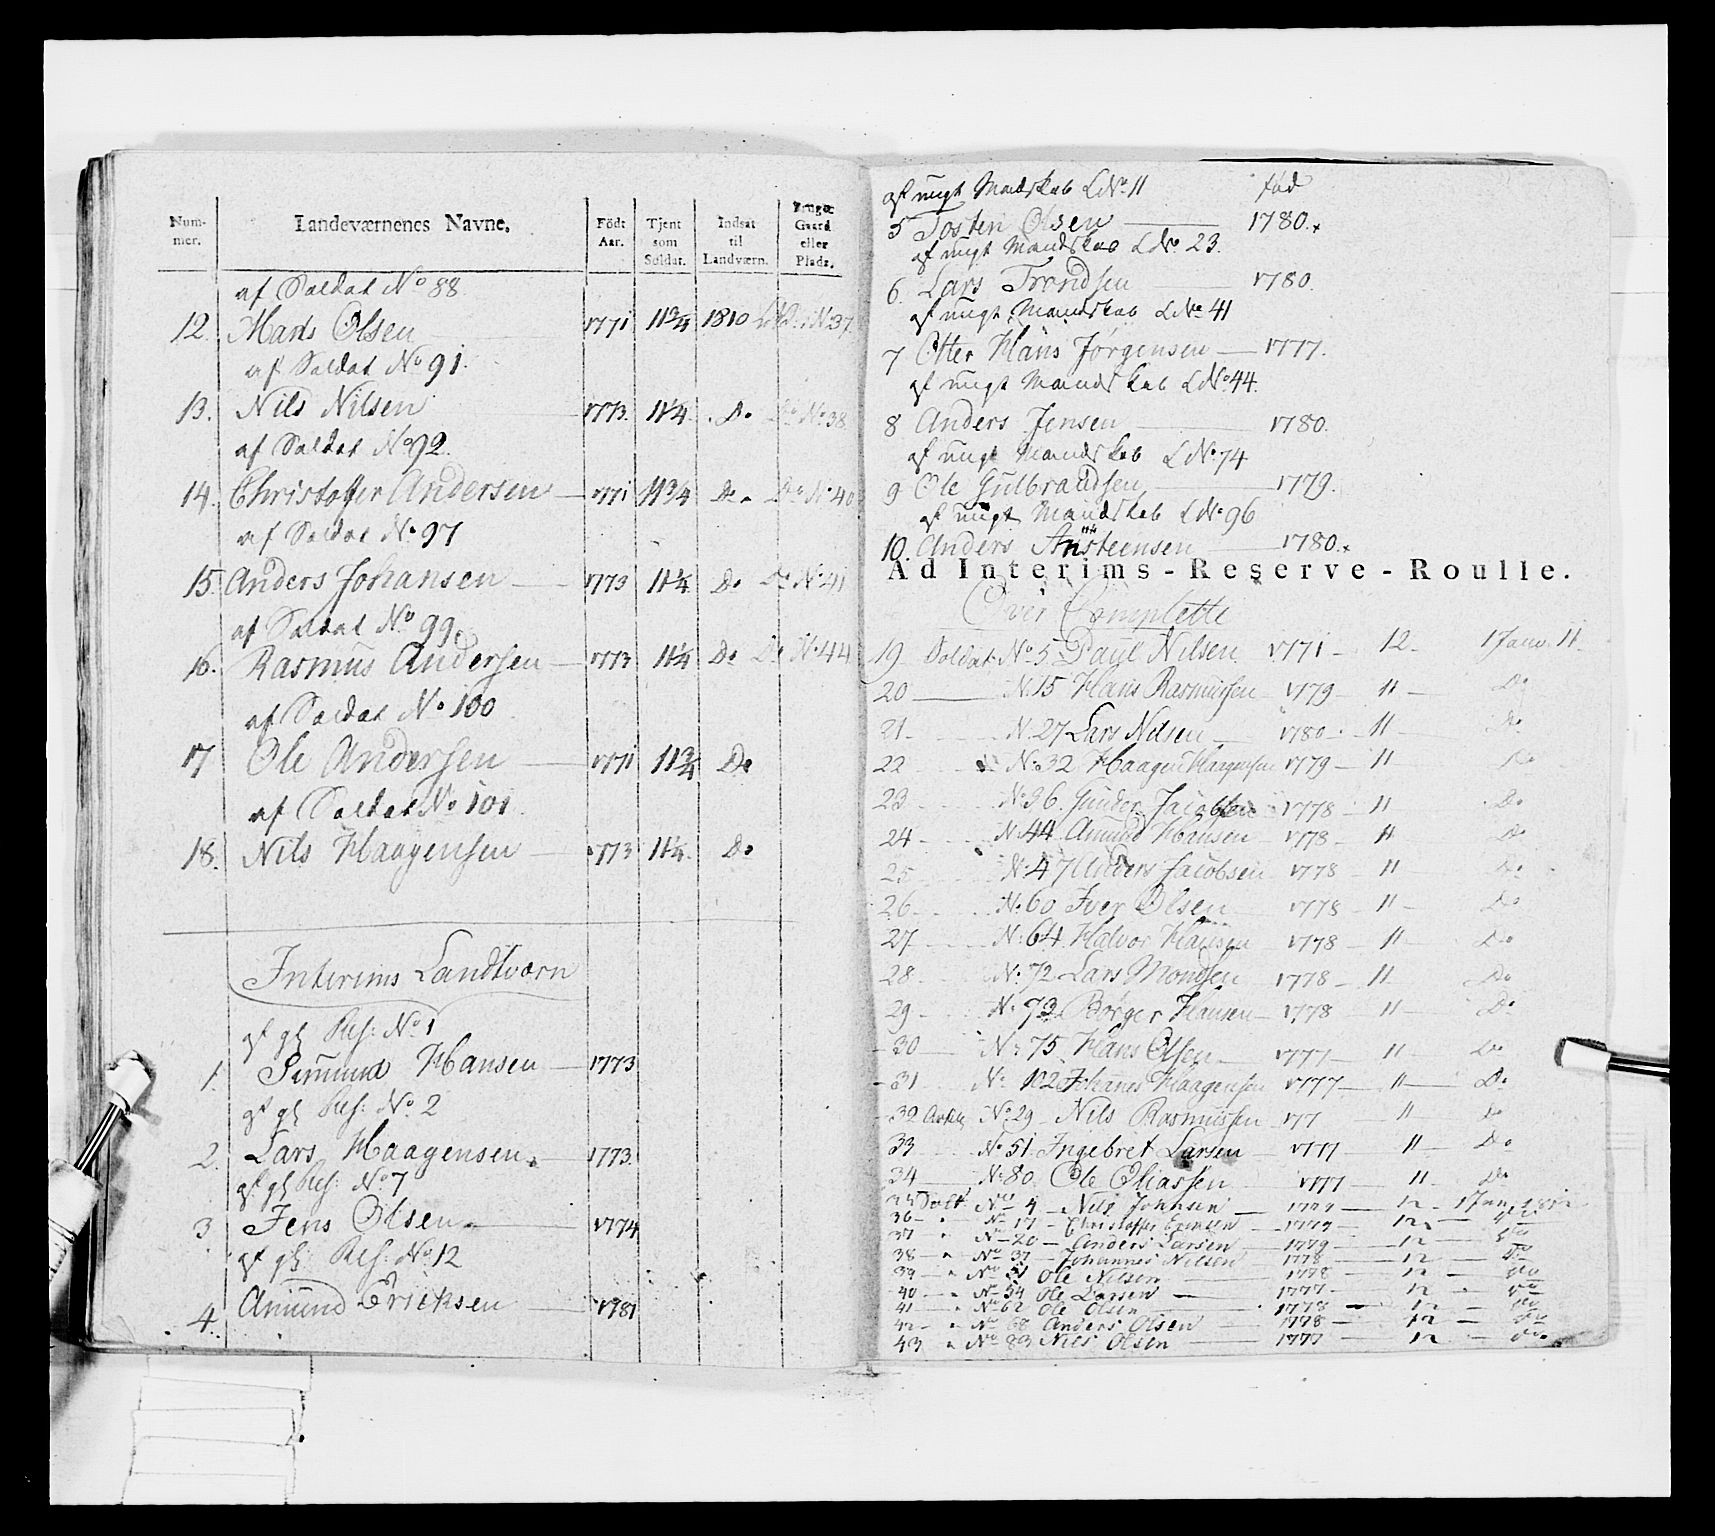 Num-
mer.
Landeværnenes Navne.
Födt
Aar.
Tjent
som
Soldat.
Indsat
til
Landværn.
Gaard
eller
Plads.
af Soldat No 88
12. Mads Olsen 1771 11 3/4 1810 No 37.
af Soldat No 91.
13. Nils Nilsen 1773. 11 1/4. Do Do No 38
af Soldat No 92.
14. Christoffer Andersen 1771 11 3/4 Do Do No 40
af Soldat No 97
15. Anders Johansen 1773 11 1/4 Do Do No 41
af Soldat No 99.
16. Rasmus Andersen 1773 11 1/4 Do Do No 44
af Soldat No 100
17 Ole Andersen 1771 11 3/4 Do
af Soldat No 101
18. Nils Haagensen 1773 11 1/4. Do
Interims Landtværn
af gl Res: No 1
1. Simund Hansen 1773
af gl Res: No 2
2. Lars Haagensen 1773.
af gl Res: No 7
3. Jens Olsen 1774
af gl: Res: No 12
4. Amund Ericksen 1781
af ungt Mandskab LNo 11 fød
5 Tosten Olsen 1780.
af ungt Mandskab LNo 23.
6. Lars Trondsen 1780.
af ungt Mandskab LNo 41
7 Otter Hans Jørgensen 1777.
af ungt Mandskab LNo 44.
8 Anders Jensen 1780.
af ungt Mandskab LNo 74
9 Ole Gulbrandsen 1779.
af ungt Mandskab LNo 96
10. Anders Ansteensen 1780.
Ad Interims-Reserve-Roulle.
Over Complette
19 Soldat No 5 Paul Nilsen 1771 - 12. 1 Janv. 11.
20 No 15 Hans Rasmussen 1779 - 11 - Do
21 - No 27 Lars Nilsen 1780 - 11 - Do
22 No 32 Haagen Haagensen 1779 - 11 Do
23 No 36. Gunder Jacobsen 1778 - 11 Do
24 - No 44 Amund Hansen 1778 - 11 Do
25 No 47 Anders Jacobsen 1778 - 11 - Do
26 - No 60 Iver Olsen 1778 - 11 - Do
27 - No 64 Halvor Hansen 1778 - 11 - Do
28 - No 72 Lars Monsen 1778 - 11 - Do
29 - No 73 Børger Hansen 1778 11 Do
30 No 75 Hans Olsen 1777 - 11 - Do
31 No 102 Johannes Haagensen 1777 - 11 - Do
32 No 29 Nils Rasmussen 177 11 Do
33 No 51 Ingebret Larsen 1777 11 - Do
34 No 80. Ole Eliassen 1777 11 - Do
35 Soldt No 4 - Nils Johnsen - 12 - 1 Jan 1812
36 - No 17 - Christoffer 1779 12 Do
37 No 20 - Anders Larsen 1779 - 12 - Do
38 - No 37 - Johannes Nilsen 1778 - 12 - Do
39 - No 51 Ole Nilsen 1778 - 12 - Do
40 - No 54 Ole Larsen - 1777 - 12 - Do
41 - No 62 Ole Olsen 1778 - 12 - Do
42 - No 68 Anders Olsen 1778 - 12 - Do
43 No 83 Nils Olsen 1777 - 12 - Do